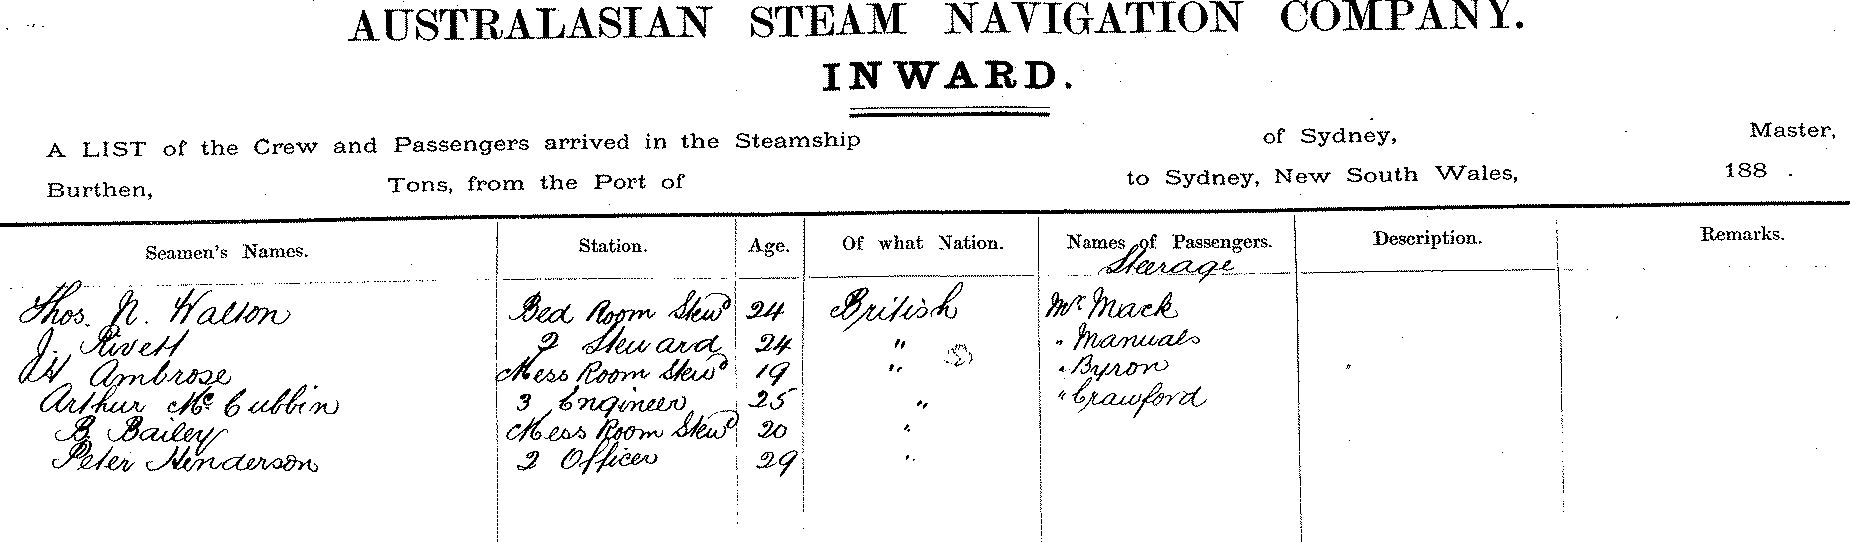 AUSTRALASIAN STEAM NAVIGATION COMPANY.
INWARD.
A LIST of the Crew and Passengers arrived in the Steamship of Sydney, Master,
Burthen, Tons, from the Port of to Sydney, New South Wales, 188 .
Seamen's Names. Station. Age. Of what Nation. Names of Passengers. Description. Remarks.
Steerage
Thos. N. Walton Bed Room Stewd 24 British Mr Mack
J. Rivett 2 Steward 24 " " Manuals
W Ambrose Mess Room Stewd 19 " " Byron
Arthur Mc Cubbin 3 Engineer 25 " " Crawford
B Bailey Mess Room Stewd 20 "
Peter Henderson 2 Officer 29 "